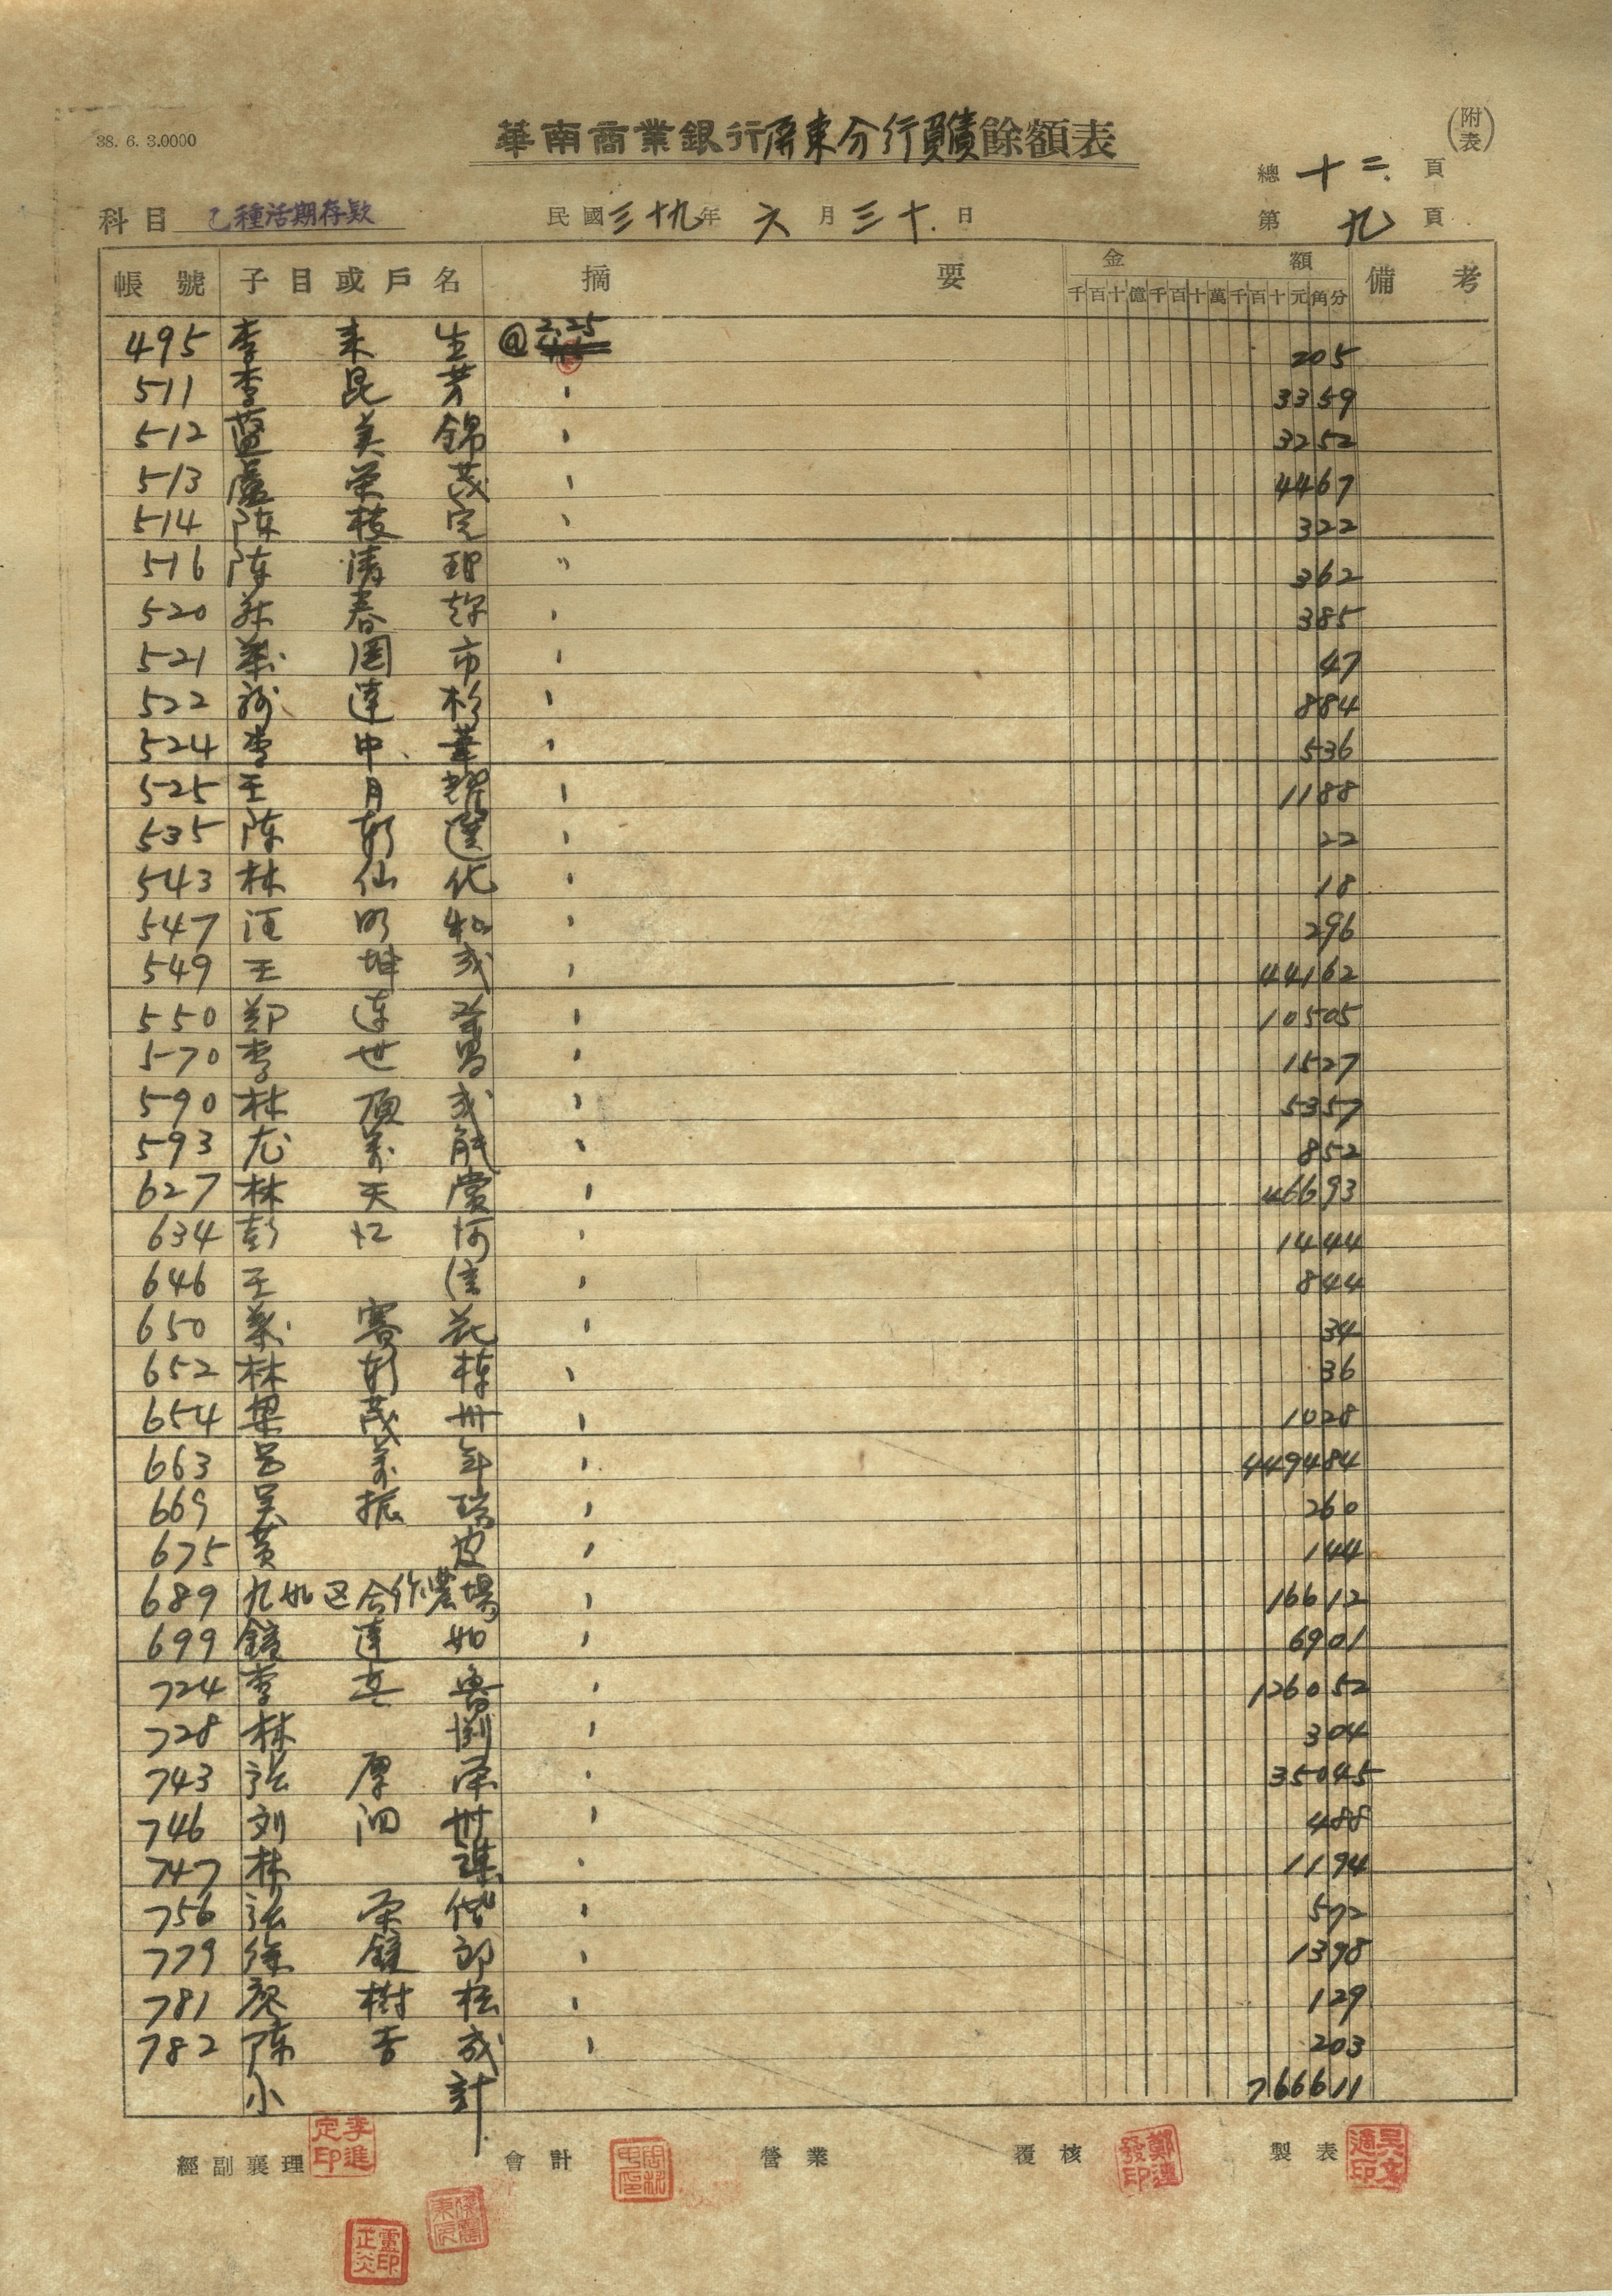 38. 6. 3.0000
華南商業銀行屏東分行負債餘額表
(附表)
總十二頁
科目 乙種活期存款 民國三十九年六月三十日 第九頁
帳號 子目或戶名 摘要 金額 備考
千百十億千百十萬千百十元角分
495 李來生 @ 2.25 205
511 李昆芳 〃 3359
512 藍美錦 〃 3252
513 盧荣茂 〃 4467
514 陈枝定 〃 322
516 陈清 〃 362
520 春 〃 385
521 葉罔市 〃 47
522 達彬 〃 884
524 李中華 〃 536
525 王月 〃 1188
535 陈 〃 22
543 林仙化 〃 18
547 明和 〃 296
549 王坤成 〃 44162
550 郑连登 〃 10505
570 李世昌 〃 1527
590 林頂成 〃 5357
593 尤萬能 〃 852
627 林天賞 〃 46693
634 彭河 〃 1444
646 王信 〃 844
650 葉花 〃 34
652 林樟 〃 36
654 梁茂州 〃 1028
663 呂萬年 〃 449484
669 吴振瑞 〃 260
675 黄皮 〃 144
689 九如区合作農場 〃 16612
699 鐘達如 〃 6901
724 李 〃 126052
728 林 〃 304
743 张厚荣 〃 35045
746 刘泗州 〃 488
747 林謀 〃 1194
756 张荣偕 〃 572
779 徐鐘郎 〃 1398
781 廖樹松 〃 129
782 陈吉成 〃 203
小計 766611
經副襄理 李進定印 會計 營業 覆核 鄭連發印 製表 吳文通印